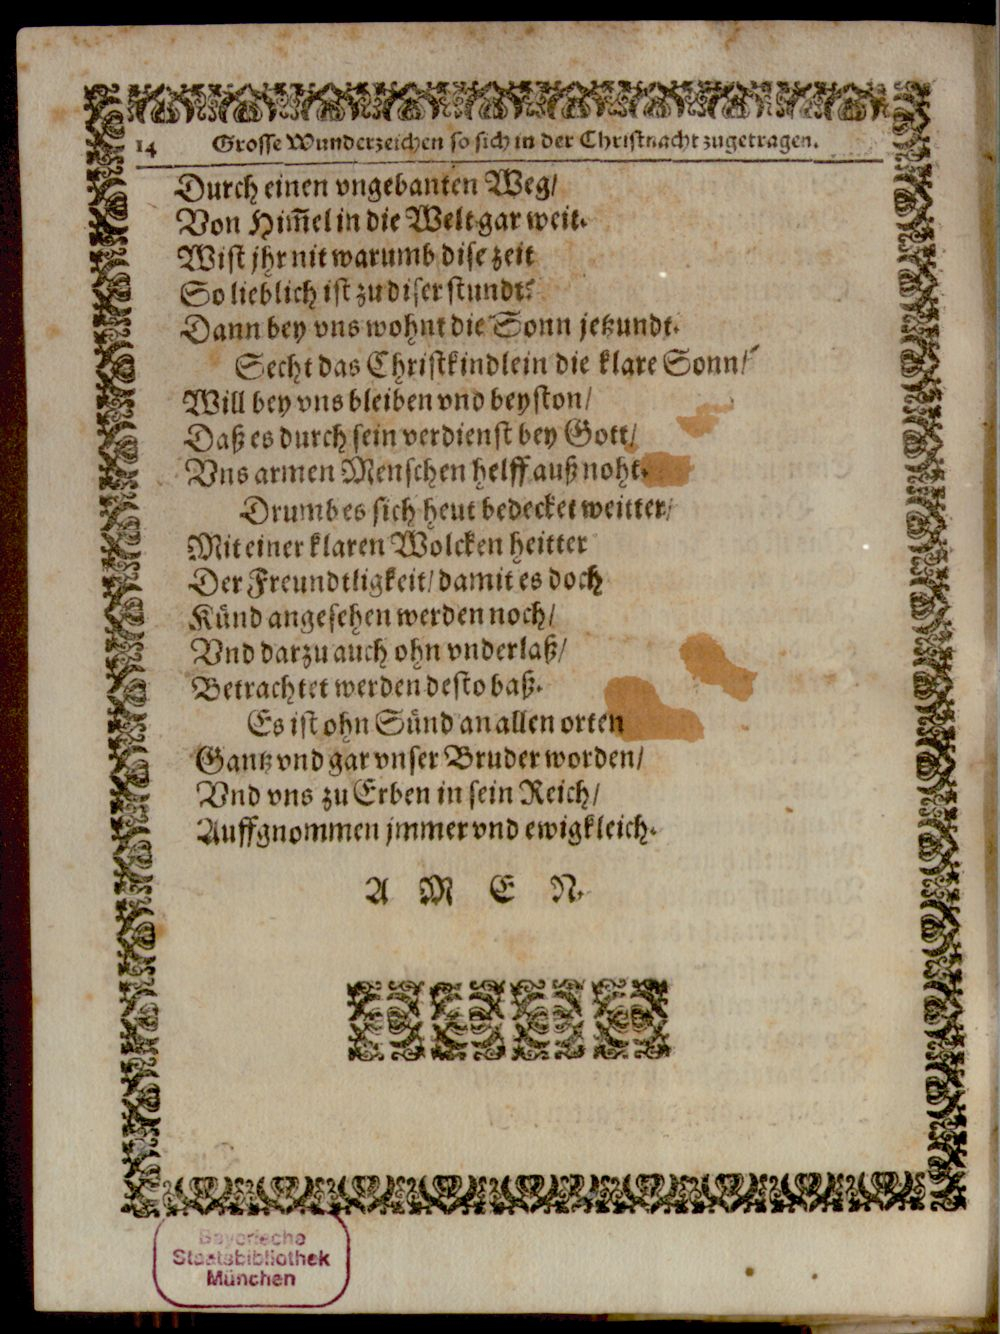 14 Grosse Wunderzeichen so sich in der Christnacht zugetragen.
Durch einen vngebanten Weg/
Von Him̅el in die Welt gar weit.
Wist jhr nit warumb dise zeit
So lieblich ist zu diser stundt?
Dann bey vns wohnt die Sonn jetzundt.
Secht das Christkindlein die klare Sonn/
Will bey vns bleiben vnd beyston/
Daß es durch sein verdienst bey Gott/
Vns armen Menschen helff auß noht.
Drumb es sich heut bedecket weitter/
Mit einer klaren Wolcken heitter
Der Freundtligkeit/ damit es doch
Künd angesehen werden noch/
Vnd darzu auch ohn vnderlaß/
Betrachtet werden desto baß.
Es ist ohn Sünd an allen orten
Gantz vnd gar vnser Bruder worden/
Vnd vns zu Erben in sein Reich/
Auffgnommen jmmer vnd ewigkleich.
A M E N.
Bayerische
Staatsbibliothek
München